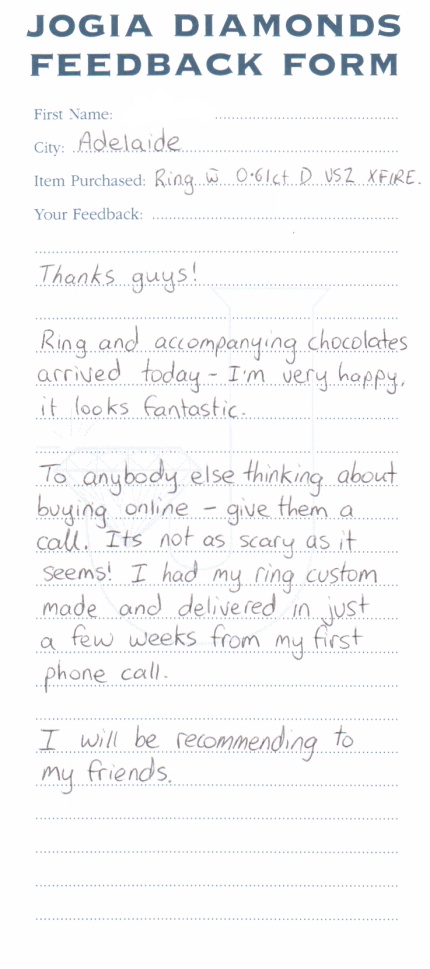 JOGIA DIAMONDS
FEEDBACK FORM
First Name:
City: Adelaide
Item Purchased: Ring w̄ 0.61ct D VS2 XFIRE.
Your Feedback:
Thanks guys!
Ring and accompanying chocolates
arrived today - I'm very happy,
it looks fantastic.
To anybody else thinking about
buying online - give them a
call. Its not as scary as it
seems! I had my ring custom
made and delivered in just
a few weeks from my first
phone call.
I will be recommending to
my friends.